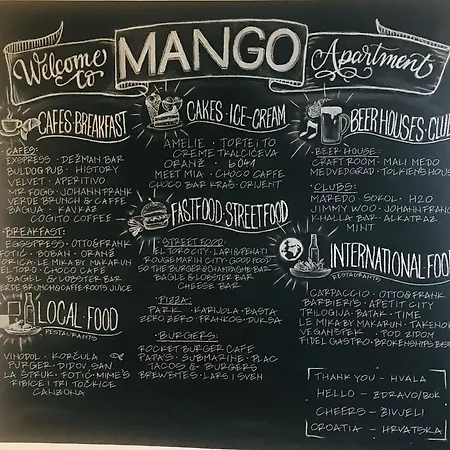 Welcome to MANGO Apartment
CAFES·BREAKFAST
CAFES:
EXSPRESS · DEŽMAN BAR
BULLDOG PUB · HISTORY
VELVET · APERITIVO
MR FOGG · JOHANN FRANK
VERDE BRUNCH & CAFFE
BAGUA · KAVKAZ
COGITO COFFEE
BREAKFAST:
EGGSPRESS · OTTO&FRANK
FOTIĆ · BOBAN · ORANŽ
LE MIKA BY MAKARUN
EL TORO · CHOCO CAFE
BAGEL & LOBSTER BAR
VERDE BRUNCH&CAFFE · ROOTS JUICE
LOCAL FOOD
RESTAURANTS
VINODOL · KORČULA
PURGER · DIDOV SAN
LA ŠTRUK · FOTIĆ · MIME'S
RIBICE I TRI TOČKICE
CANZONA
CAKES·ICE-CREAM
AMELIE · TORTE I TO
CREME TKALČIĆEVA
ORANŽ · B041
MEET MIA · CHOCO CAFFE
CHOCO BAR KRAŠ · ORIJENT
FASTFOOD·STREETFOOD
STREETFOOD:
EL TORO CITY · LARI&PENATI
ROUGEMARIN CITY · GOOD FOOD
SO THE BURGER&CHAMPAGNE BAR
BAGLE & LOBSTER BAR
CHEESE BAR
PIZZA:
PARK · KARIJOLA · BASTA
ZERO ZERO · FRANKOS · DUKSA
BURGERS:
ROCKET BURGER CAFE
PAPA'S · SUBMARINE · PLAC
TACOS & BURGERS
BREWBITES · LARS I SVEN
BEER HOUSES·CLUB
BEER HOUSE:
CRAFT ROOM · MALI MEDO
MEDVEDGRAD · TOLKIEN'S HOUSE
CLUBS:
MAREDO · SOKOL · H2O
JIMMY WOO · JOHANN FRANK
KHALLA BAR · ALKATRAZ
MINT
INTERNATIONAL FOOD
RESTAURANTS
CARPACCIO · OTTO&FRANK
BARBIERI'S · APETIT CITY
TRILOGIJA · BATAK · TIME
LE MIKA BY MAKARUN · TAKENOKO
VEGANŠPEK · POD ZIDOM
FIDEL GASTRO · BROKENSHIPS BISTRO
THANK YOU - HVALA
HELLO - ZDRAVO/BOK
CHEERS - ŽIVJELI
CROATIA - HRVATSKA